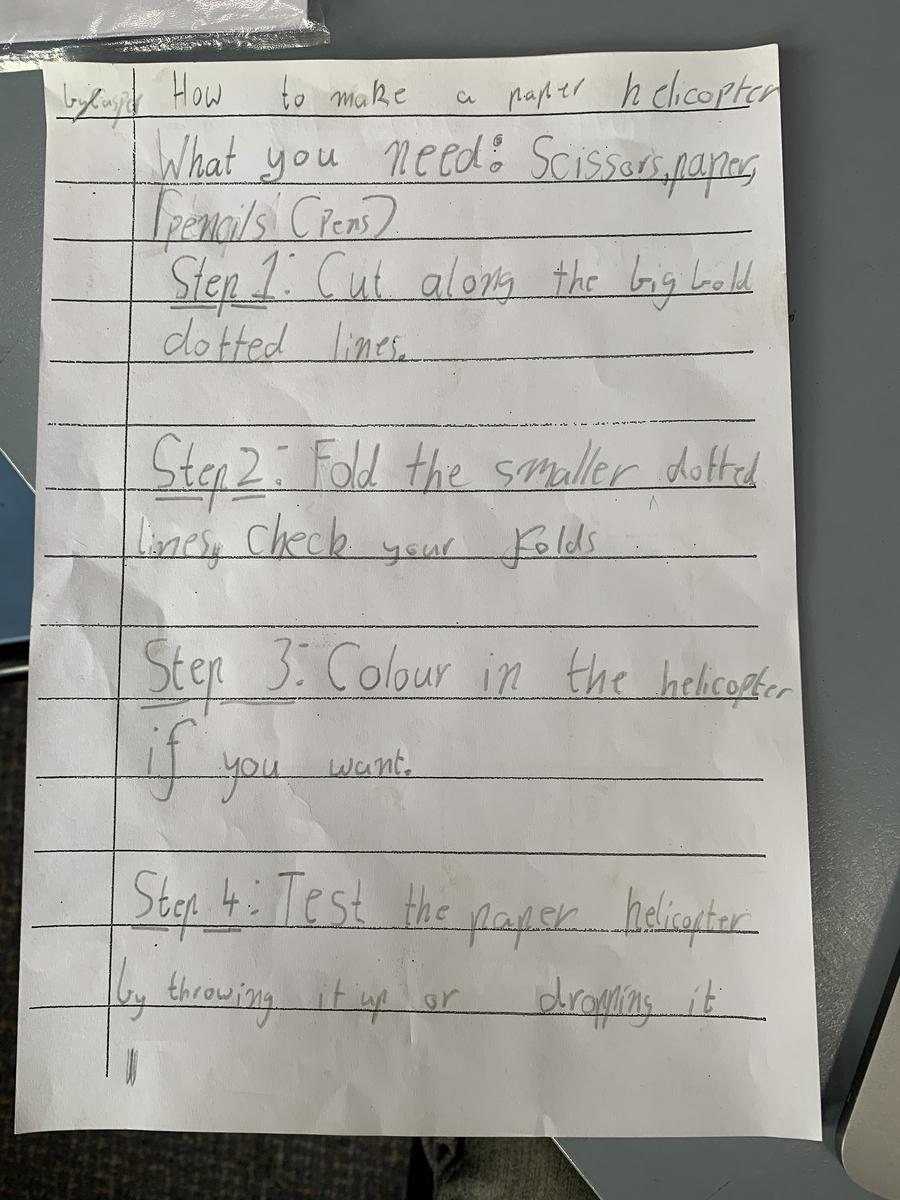 by Casper How to make a paper helicopter
What you need: Scissors, paper,
pencils (Pens)
Step 1: Cut along the big bold
dotted lines.
Step 2: Fold the smaller dotted
lines, check your Folds
Step 3: Colour in the helicopter
if you want.
Step 4: Test the paper helicopter
by throwing it up or dropping it